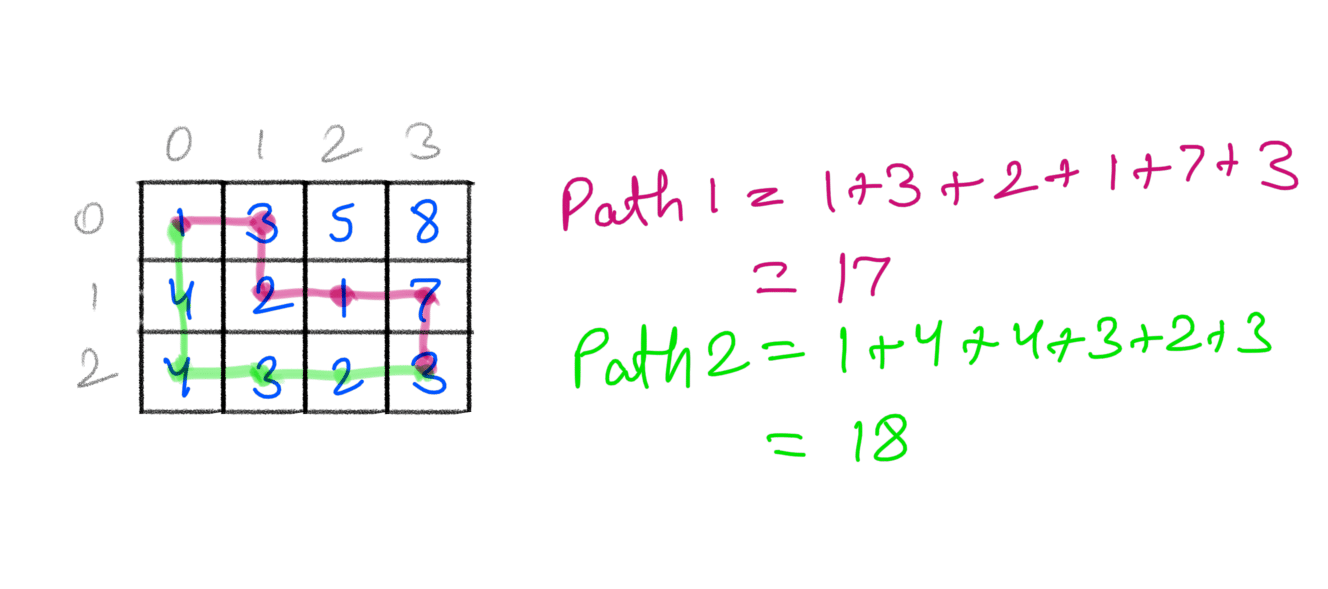 0 1 2 3
0 1 3 5 8
1 4 2 1 7
2 4 3 2 3
Path 1 = 1+3+2+1+7+3
= 17
Path 2 = 1+4+4+3+2+3
= 18